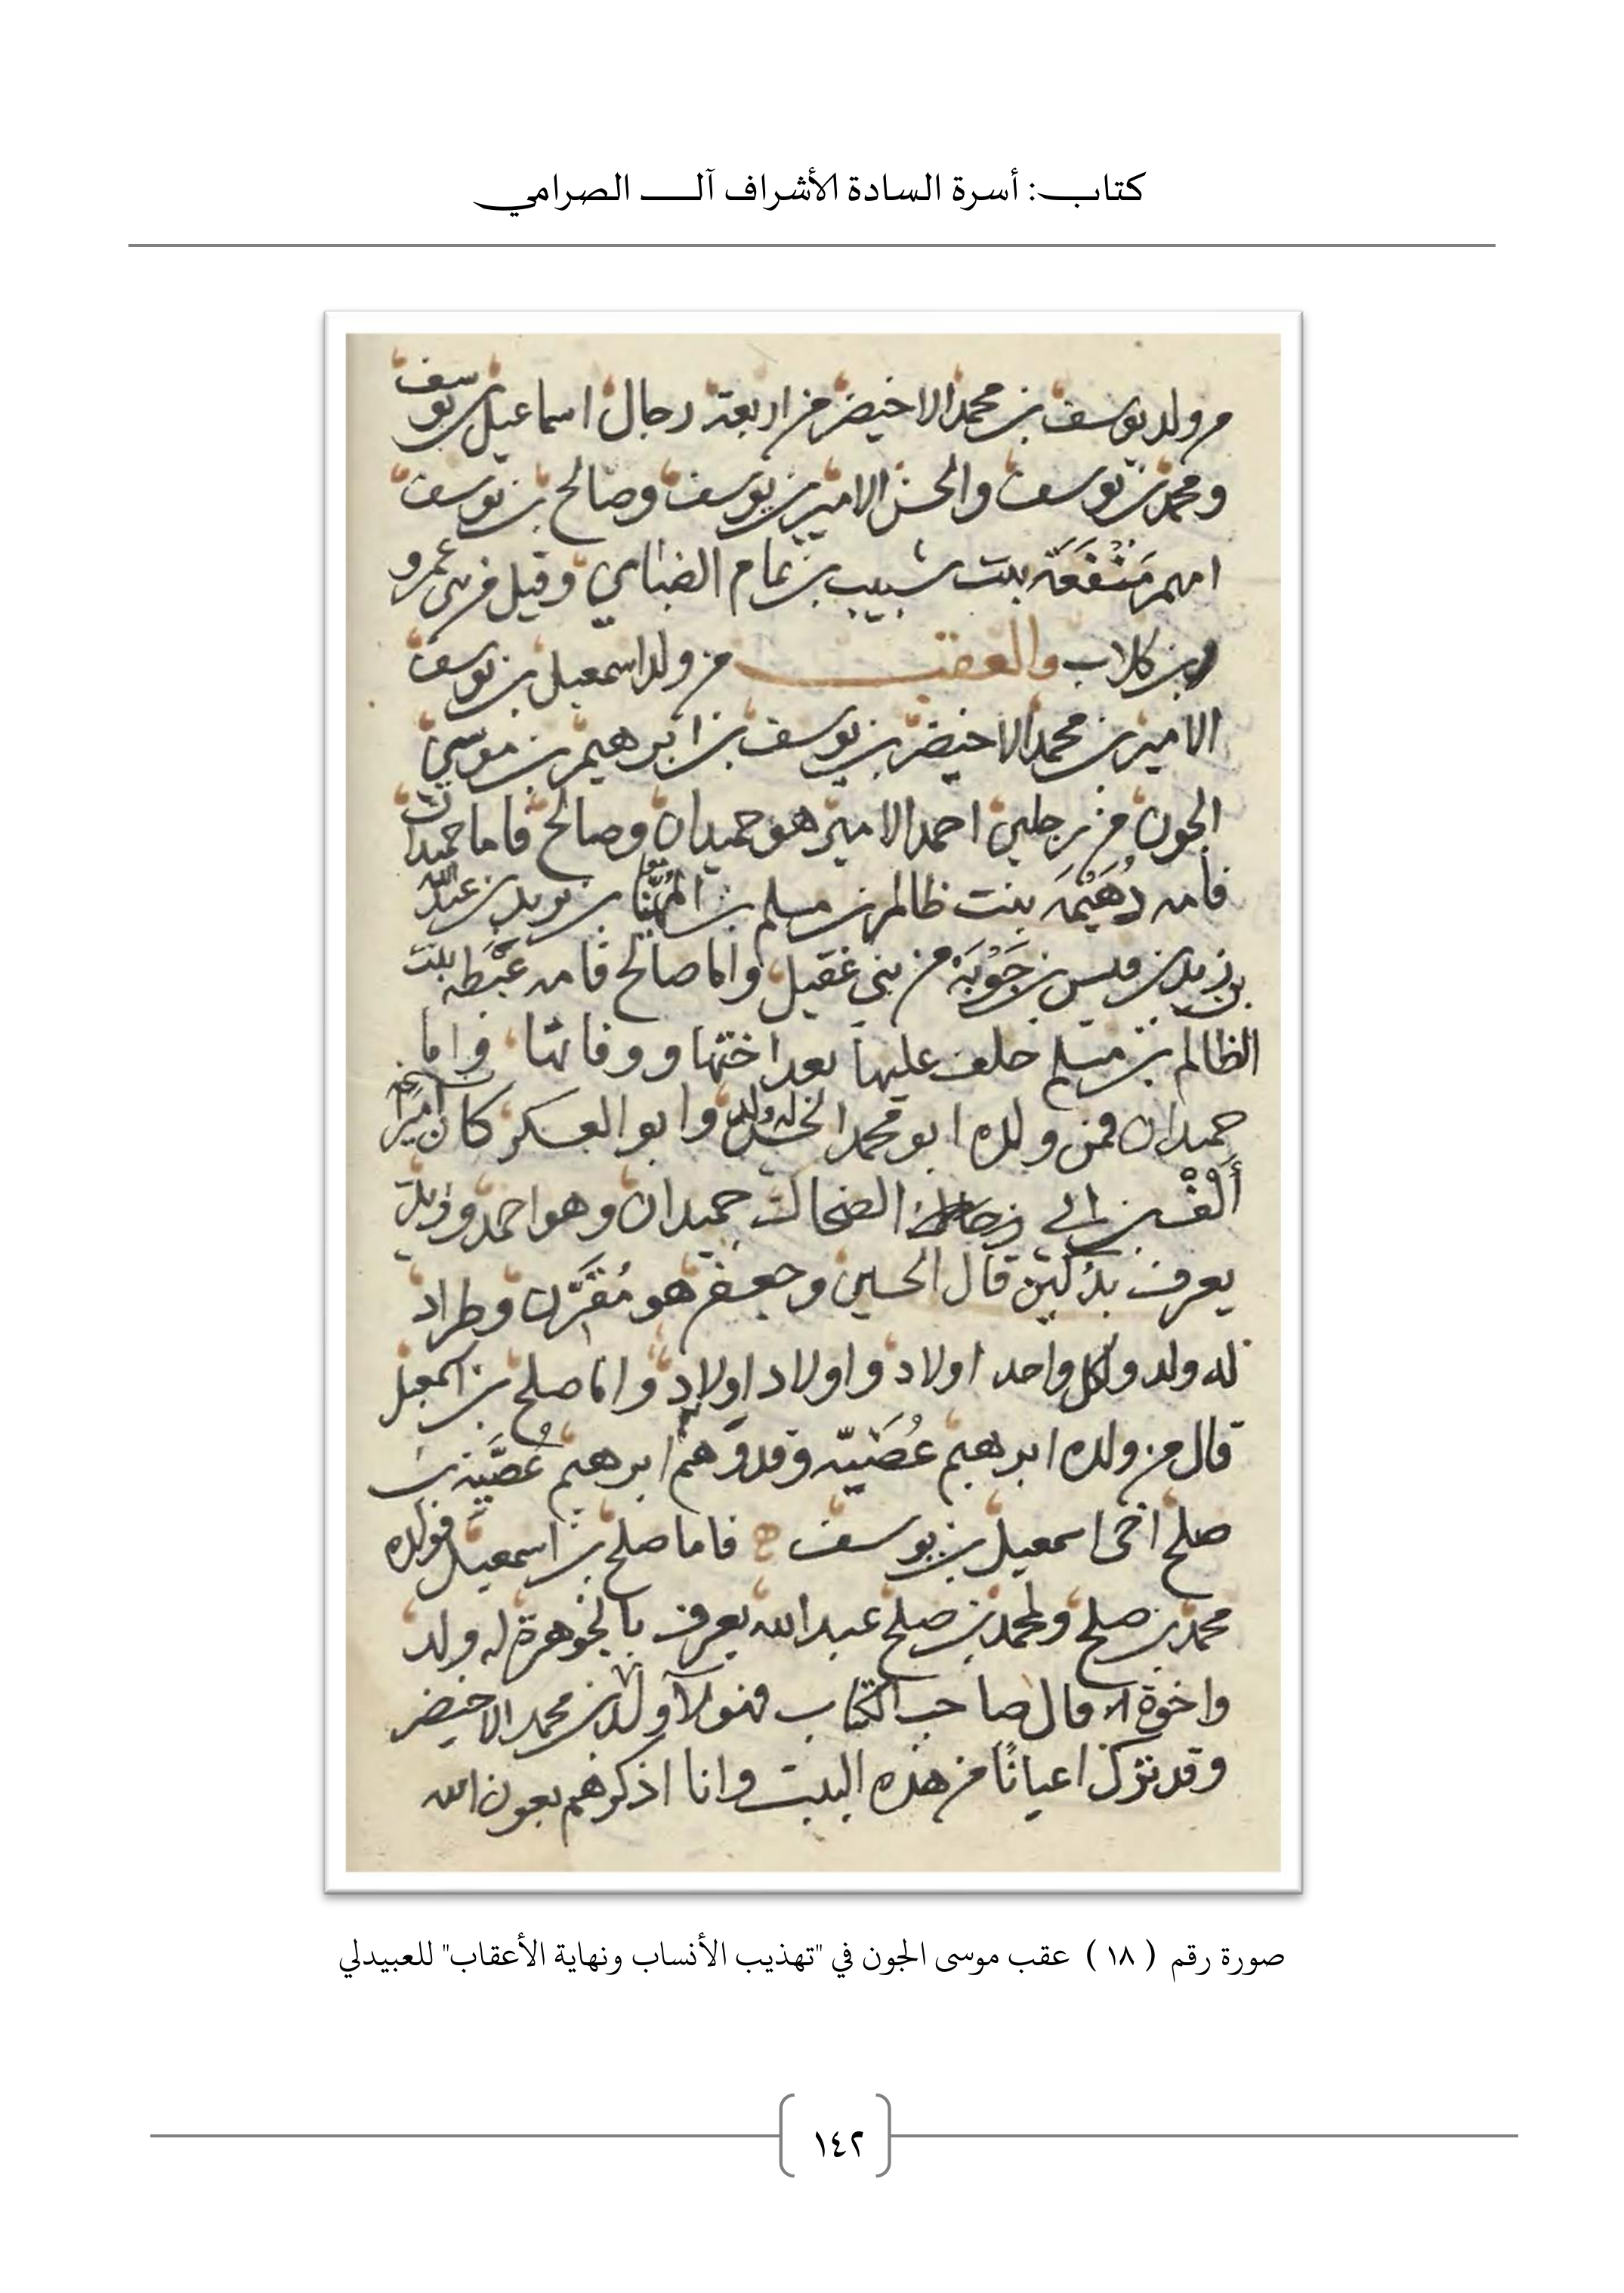 كتاب: أسرة السادة الأشراف آل الصرامي
من ولد يوسف بن محمد الاخيضر من اربعة رجال اسماعيل بن يوسف
ومحمد بن يوسف والحسن الامير بن يوسف وصالح بن يوسف
امهم مَنْفَعَة بنت شبيب بن تمام الضبابي وقيل من بني عمرو
بن كلاب والعقب من ولد اسمعيل بن يوسف
الامير بن محمد الاخيضر بن يوسف بن ابرهيم بن موسى
الجون من رجلين احمد الامير هو حميدان وصالح فاما حميدان
فامه دُهَيْمَة بنت ظالم بن مسلم بن المُهَنّا بن يزيد بن عبد الله
بن زيد بن قيس بن جَوْبَة من بني عقيل واما صالح فامه غَبْطه بنت
الظالم بن مسلم خلف عليها بعد اختها ووفاتها واما
حميدان فمن ولده ابو محمد الحسن له ولد وابو العسكر كان اميرا
بن الضحاك حميدان وهو احمد
يعرف قال الحسين وجعفر هو مُقَرَّن وطراد
له ولد ولكل واحد اولاد واولاد اولاد واما صلح بن اسمعيل
قال من ولده ابرهيم عُصَيّه وقد وهم ابرهيم عُصَيَّة بن
صلح اخى اسمعيل بن يوسف فاما صلح بن اسمعيل فولده
محمد بن صلح ولمحمد بن صلح عبد الله يعرف بالجوهرة له ولد
واخوة قال صاحب الكتاب فهولآ ولد بن محمد الاخيضر
وقد ترك اعيانًا من هذه البيت وانا اذكرهم بعون الله
صورة رقم ( ١٨ ) عقب موسى الجون في "تهذيب الأنساب ونهاية الأعقاب" للعبيدلي
١٤٢